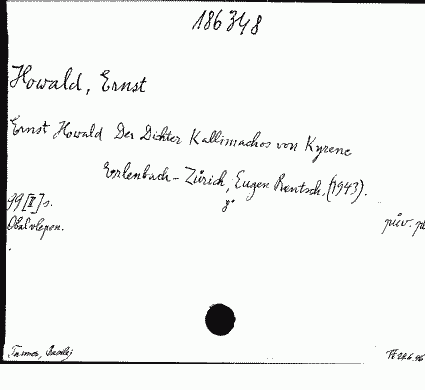 186348
Howald, Ernst
Ernst Howald Der Dichter Kallimachos von Kyrene
Erlenbach-Zürich, Eugen Rentsch, (1943).
8°
99 [II] s.
Obal vlepen.
pův.